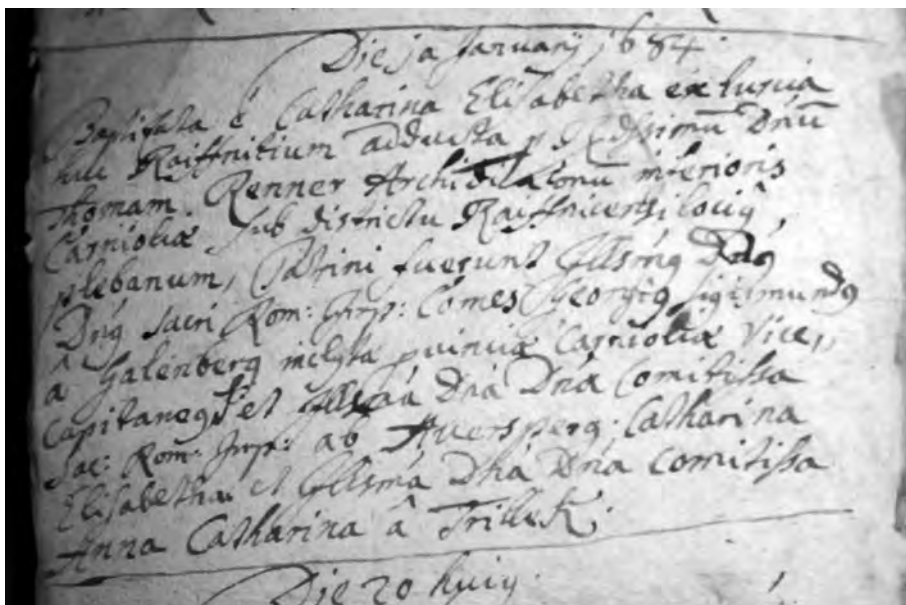 Die ja January 1684.
Baptizata ē Catharina Elisabetha ex turcia
huc Raiffnitium adducta p Rdssimū Dnū
Thomam Renner Archidiaconū inferioris
Carnioliæ sub districtu Raiffnicensi lociq
plebanum, Patrini fuerunt Illsmq Dnq
Dnq Sacri Rom: Imp: Comes Georgiq Sigismundq
â Galenberg inclytæ puinciæ Carnioliæ Vice,,
Capitaneq et Illsma Dna Dna Comitissa
Sac: Rom: Imp: ab Auersperg Catharina
Elisabetha et Illsmá Dná Dná Comitissa
Anna Catharina â Trillek.
Die 20 huiq.